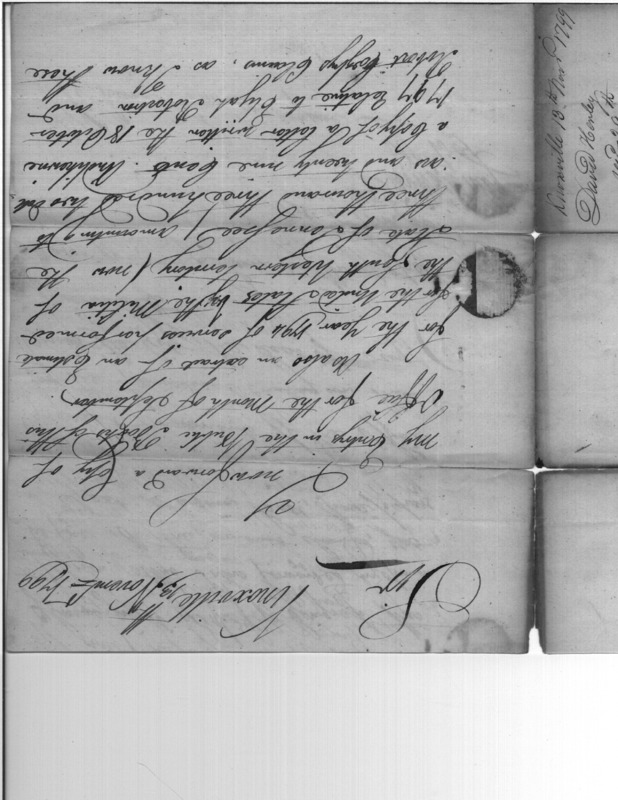 Knoxville 13th Novemr 1799
Sir
I
now forward a Copy of
my Entrys in the Public Books of this
Office for the Month of September.
As also an extract of an Estimate
for the Year 1794 of services performed
for the United States by the Militia of
the South Western Territory (now the
State of Tennessee) amounting to
three thousand three hundred two doll
ars and twenty nine Cents. Likewise
a Copy of a letter written the 13 October
1797 relative to Elijah Robertson and
Robert Claims, as I know these
Knoxville 13th Novr 1799
David Henley